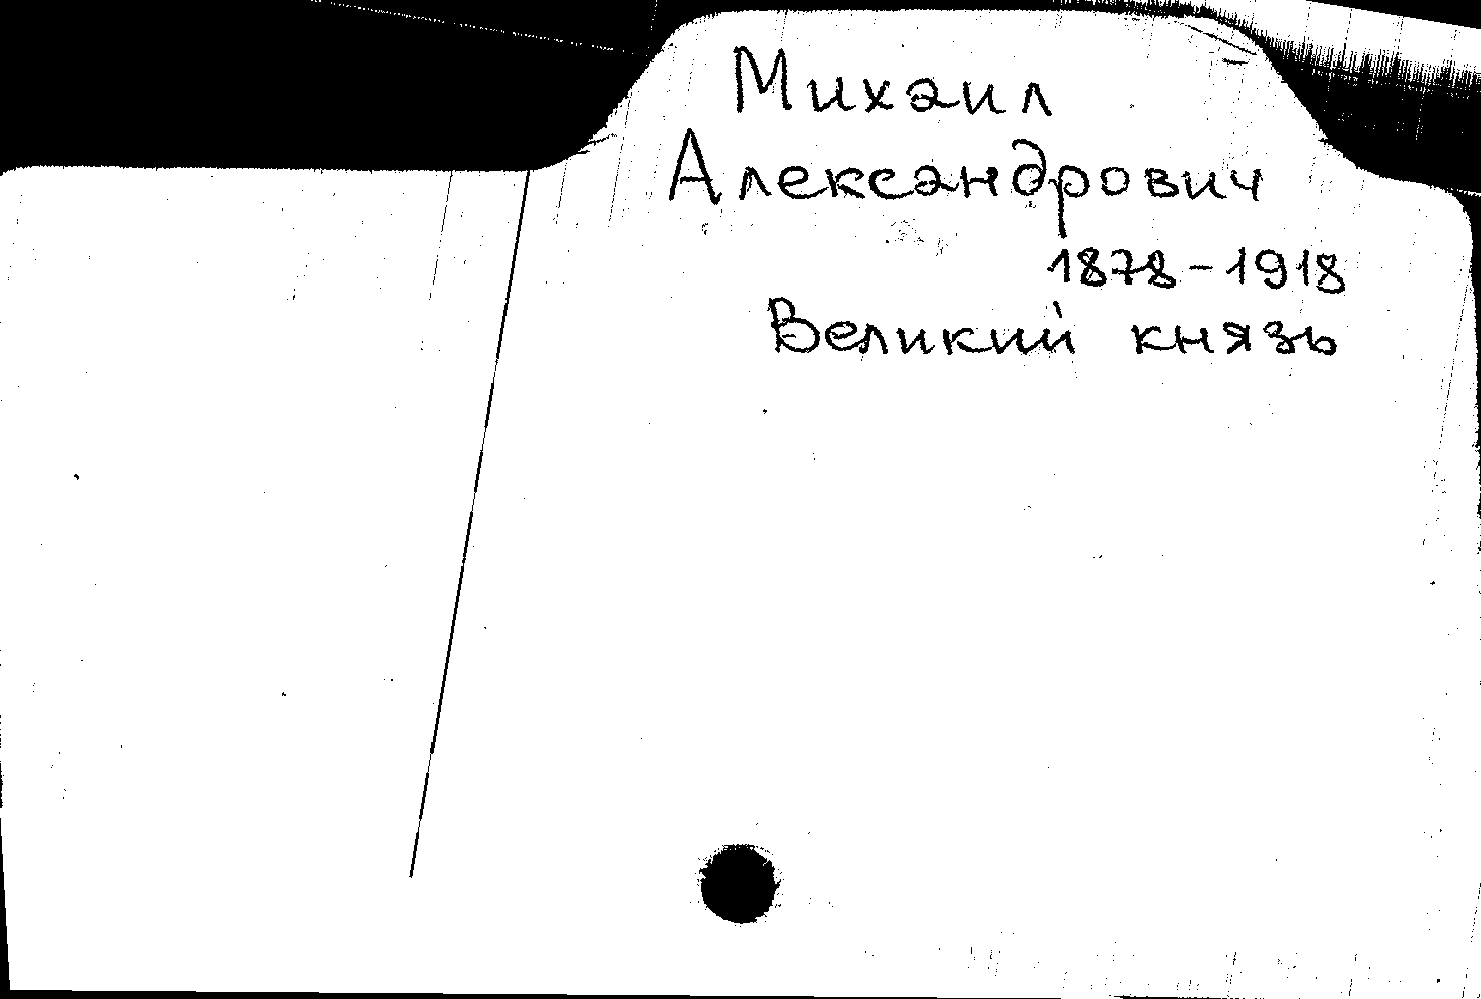 Михаил
Александрович
1878-1918
Великий князь